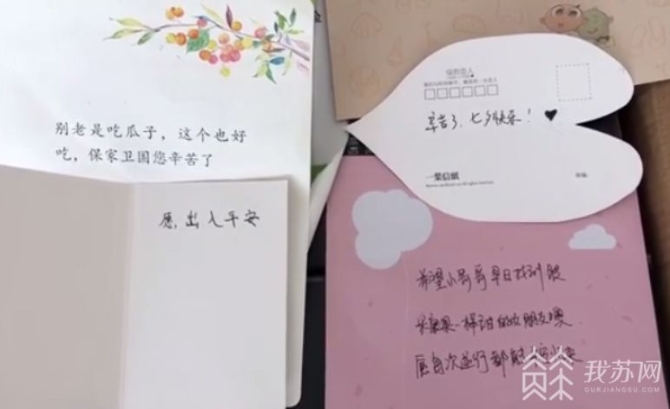 别老是吃瓜子，这个也好
吃，保家卫国您辛苦了
愿，出入平安
辛苦了，七夕快乐！♥
一葉信紙
希望小哥哥早日找到跟
一样甜的女朋友噢
愿每次逆行都能
我苏网
OURJIANGSU.COM